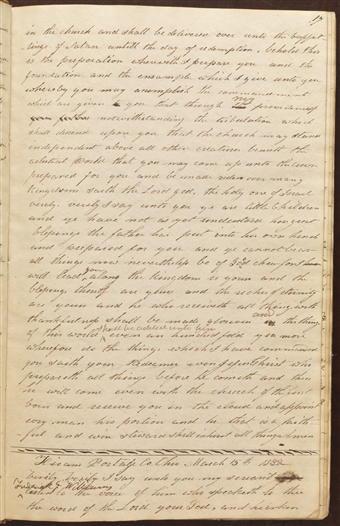 in the church and shall be delivered over unto the buffet
tings of Satan untill the day of redemption, behold this
is the preparation wherewith I prepare you and the
foundation and the ensample which I give unto you
whereby you may accomplish the commandment
which are given you that through my providence
notwithstanding the tribulation which
shall descend upon you that the church may stand
independent above all other creatures beneath the
celestial world that you may come up unto the crown
prepared for you and be made rulers over many
Kingdoms saith the Lord god, the holy one of Israel
verily verily I say unto you ye are little children
and ye have not as yet understood how great
blesings the father has put into his own hand
and prepared for you and ye cannot bear
all things now nevertheless be of good cheer for I
will lead you along the Kingdom is yours and the
blesings thereof are yours and the riches of eternity
are yours and he who receiveth all things with
thankfulness shall be made glorious and the things
of this world shall be added unto him even an hundred fold yea more
wherefore do the things which I have commanded
you saith your Redeemer even Jesus Christ who
prepareth all things before he cometh and then
he will come even with the church of the first
born and receive you in the cloud and appoint
every man his portion and he that is a faith
ful and wise Steward shall inherit all things amen
Hiram Portage Co Ohio March 15th 1832
verily verily I say unto you my servant
Frederick G Williams listen to the voice of him who speaketh to thee
the word of the Lord your God, and hearken